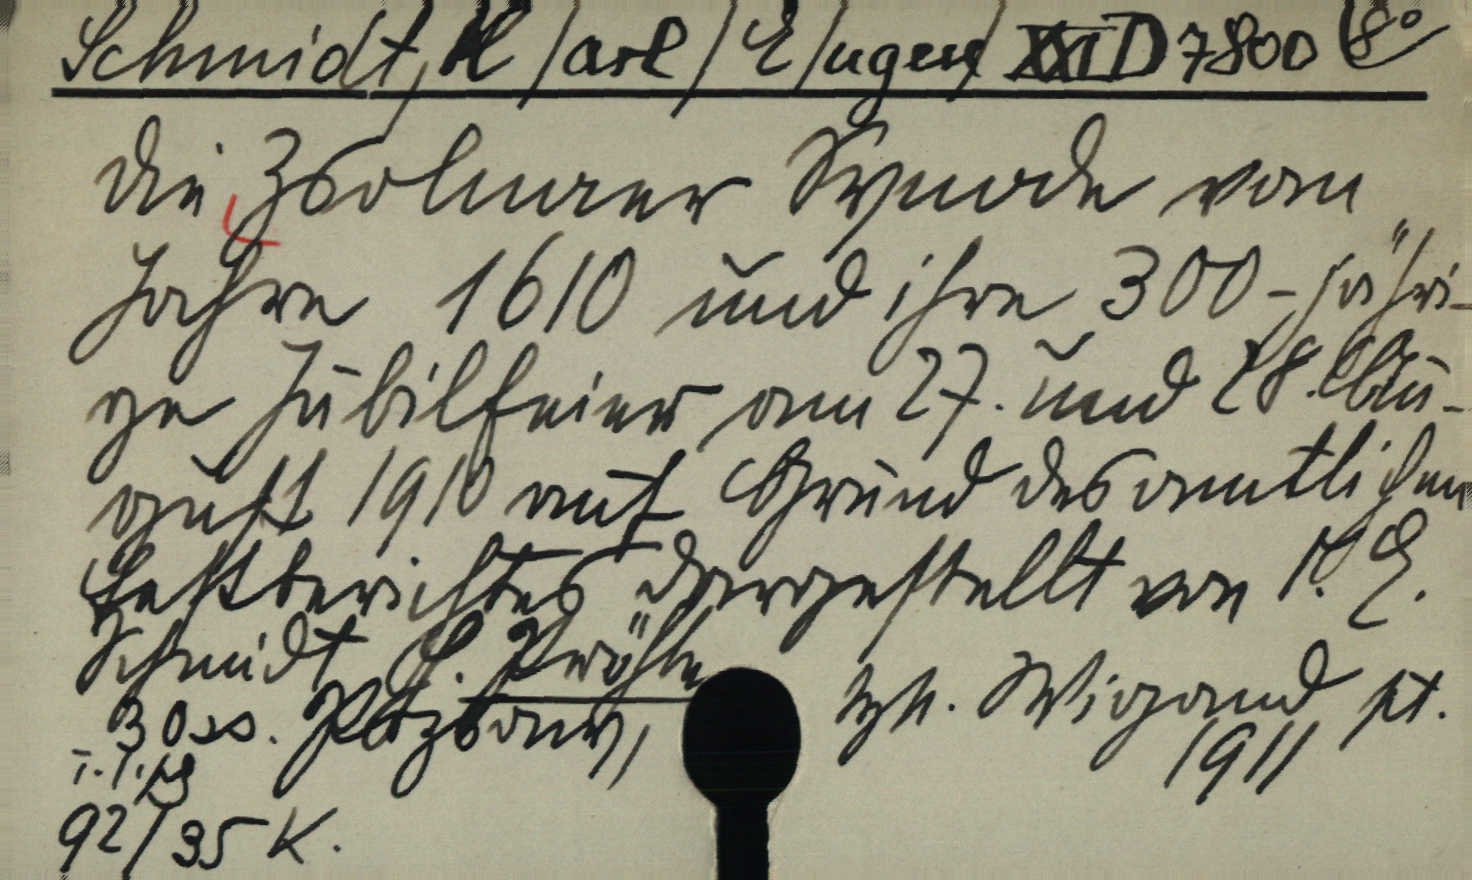 Schmidt, K/arl/ E/ugen/ XXI D 7800 (8°
Die Zsolnaer Synode vom
Jahre 1610 und ihre 300-jähri-
ge Jubilfeier am 27. und 28. Au-
gust 1910 auf Grund des amtlichen
Festberichtes dargestellt von K. E.
Schmidt, H. Pröhle
Pozsony, Wigand
1911
92/35 K.